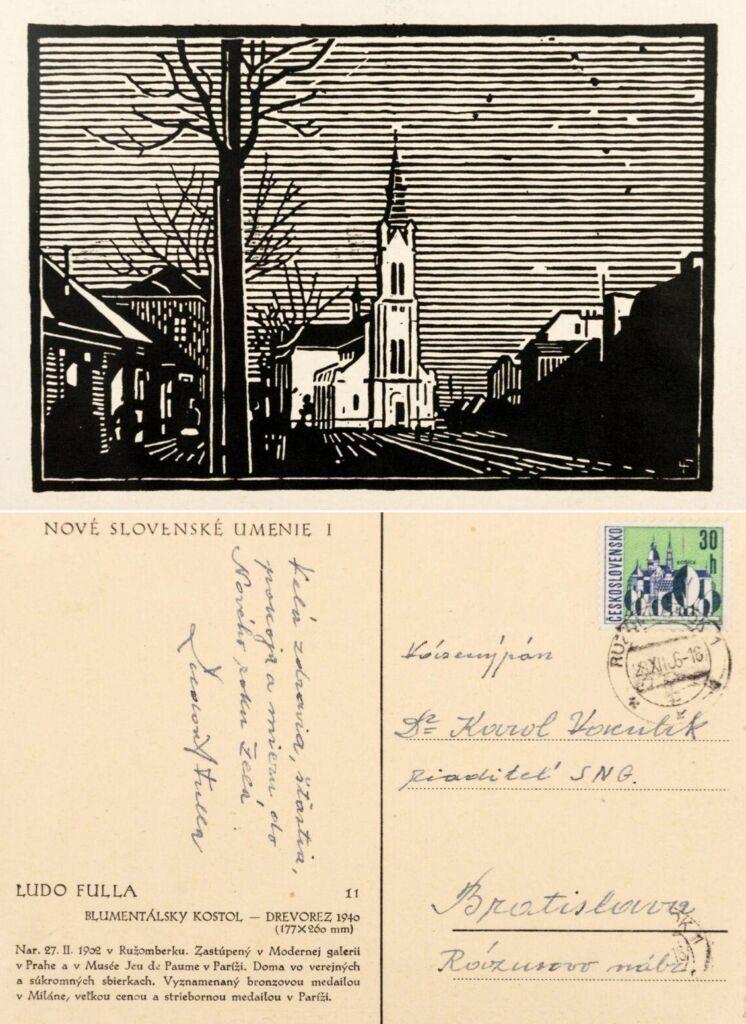 NOVÉ SLOVENSKÉ UMENIE I
Veľa zdravia, šťastia,
pokoja a mieru do
Nového roku želá
Ľudovít Fulla
ĽUDO FULLA 11
BLUMENTÁLSKY KOSTOL — DREVOREZ 1940
(177×260 mm)
Nar. 27. II. 1902 v Ružomberku. Zastúpený v Modernej galerii
v Prahe a v Musée Jeu de Paume v Paríži. Doma vo verejných
a súkromných sbierkach. Vyznamenaný bronzovou medailou
v Miláne, veľkou cenou a striebornou medailou v Paríži.
ČESKOSLOVENSKO
30 h
KOŠICE
Vážený pán
Dr. Karol Vaculík
riaditeľ SNG.
Bratislava
Rázusovo nábr.